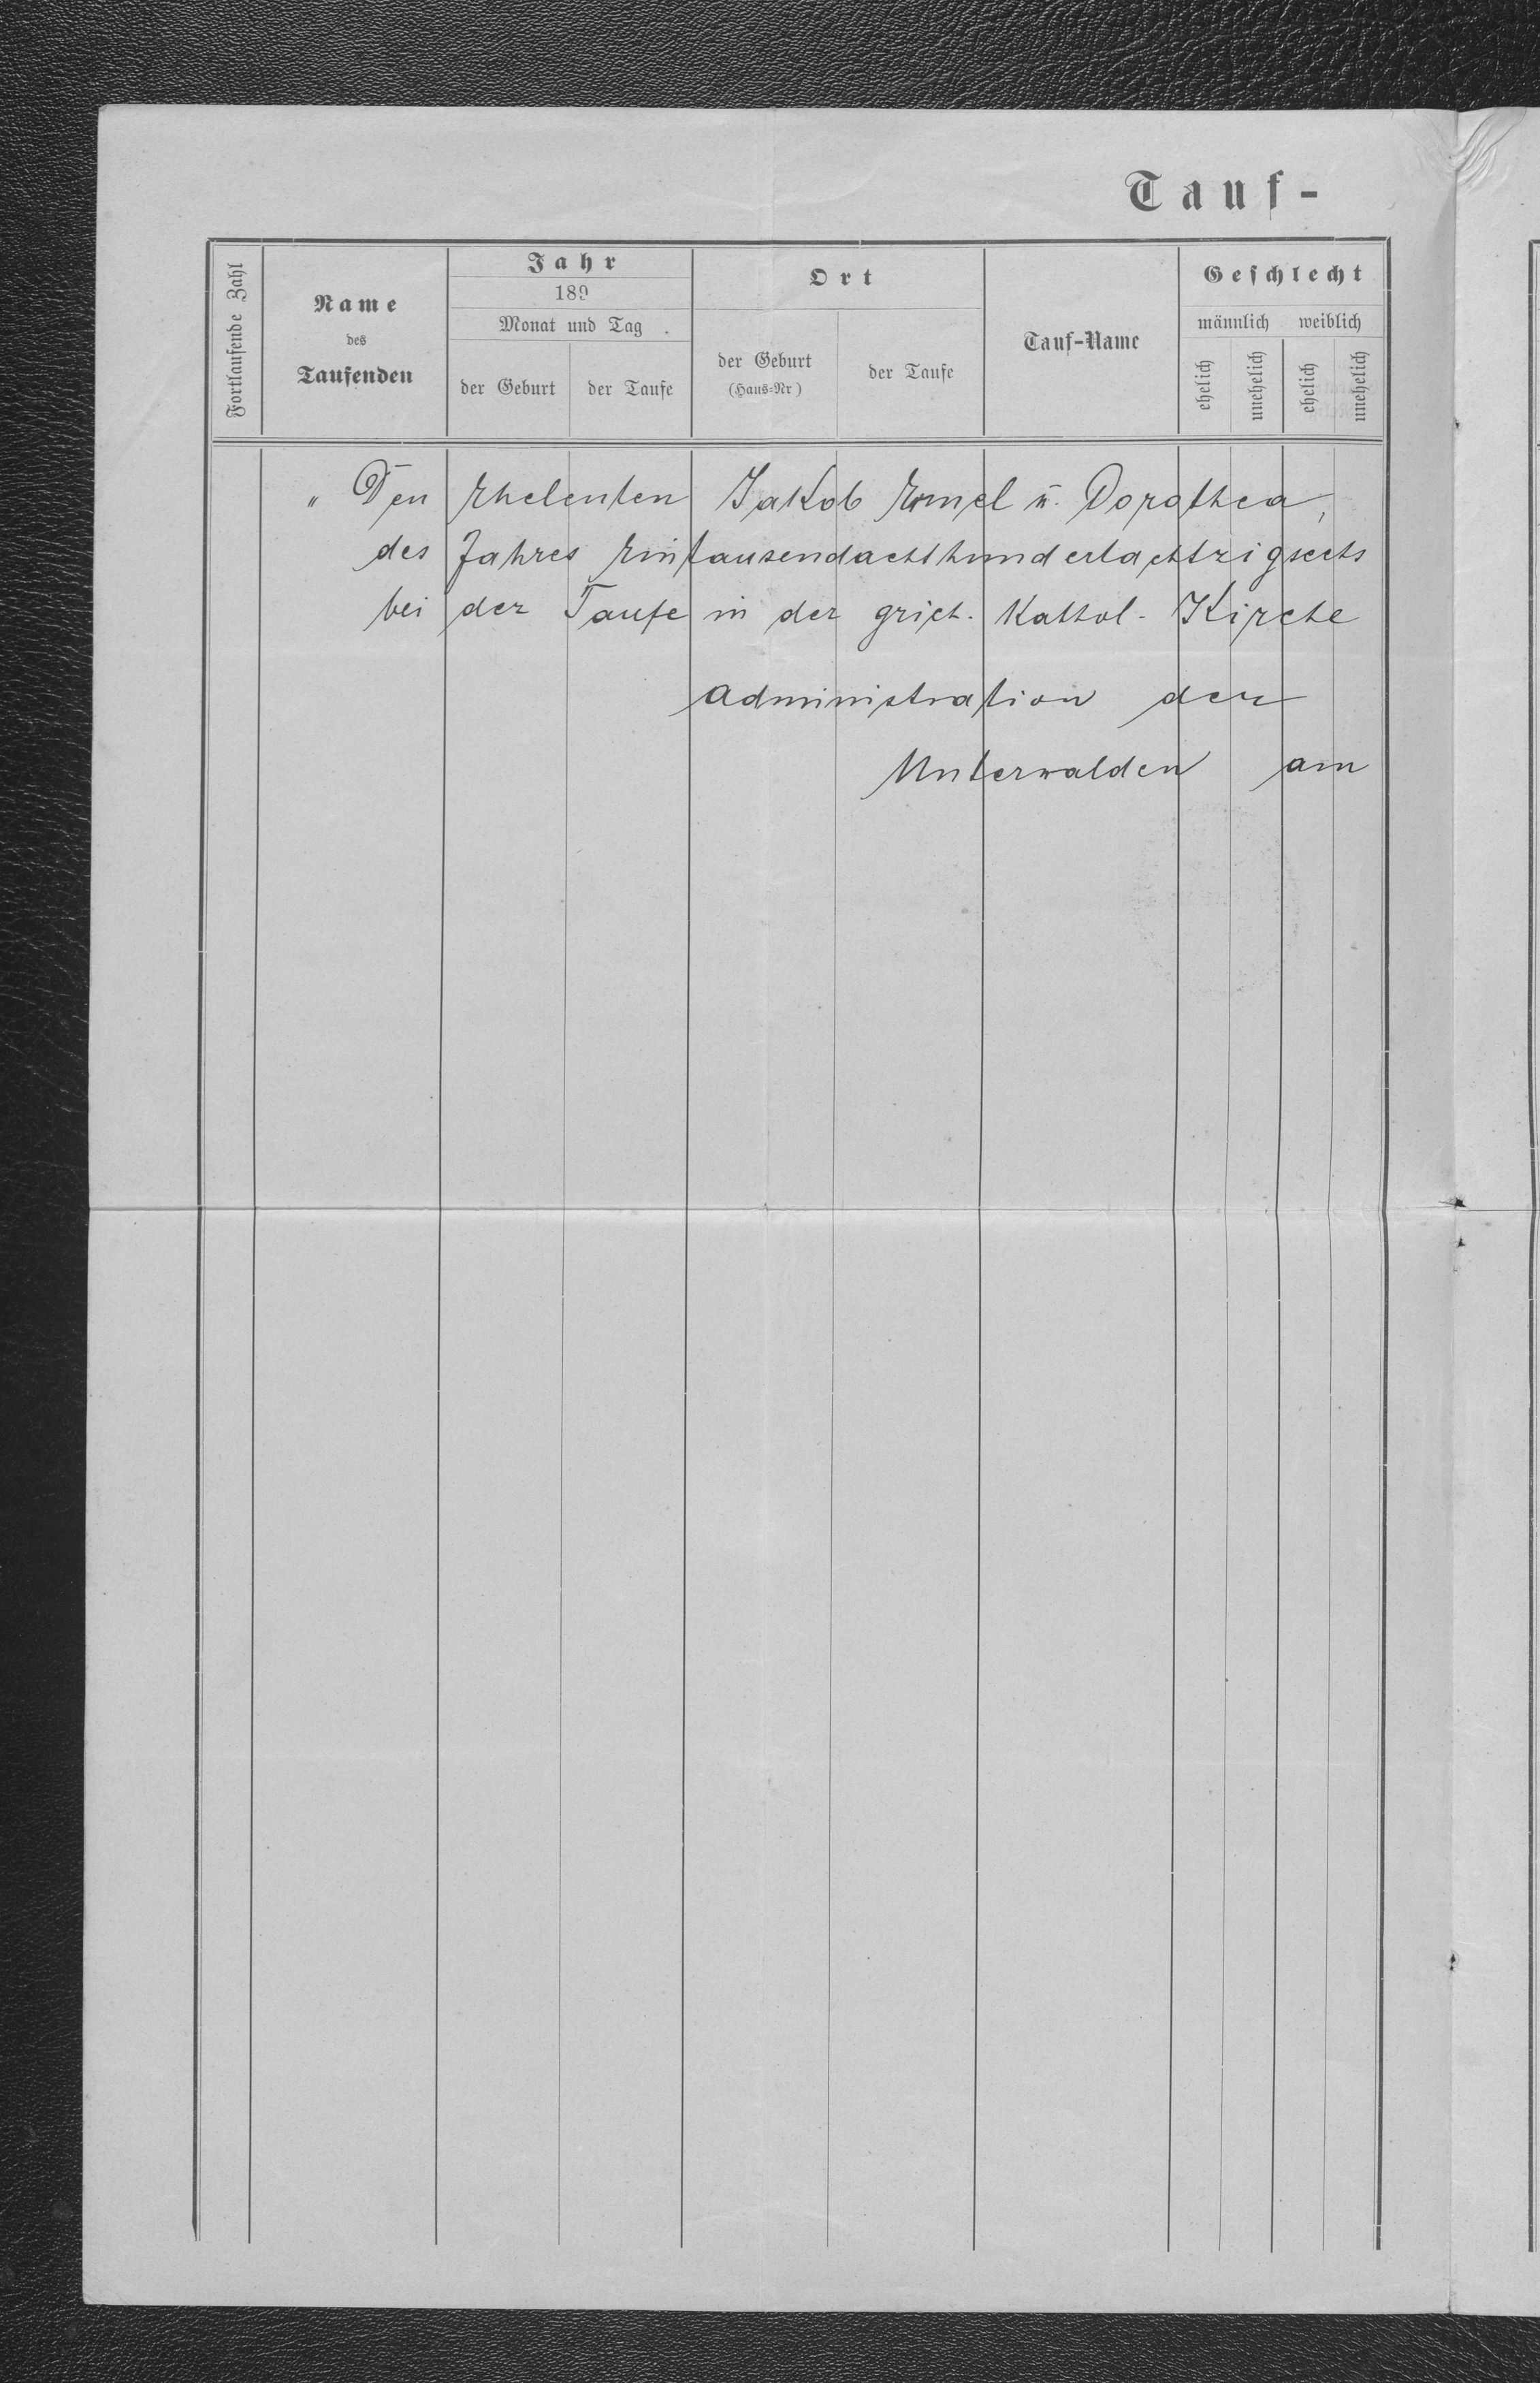 Tauf-
Fortlaufende Zahl
Name
des
Taufenden
Jahr
189
Monat und Tag
der Geburt
der Taufe
Ort
der Geburt
(Haus-Nr)
der Taufe
Tauf-Name
Geschlecht
männlich weiblich
ehelich
unehelich
ehelich
unehelich
„ Den Eheleuten Jakob u. Dorothea,
des Jahres Eintausendachthundertachtzigsechs
bei der Taufe in der griech. Kathol. Kirche
Administration der
Unterwalden am